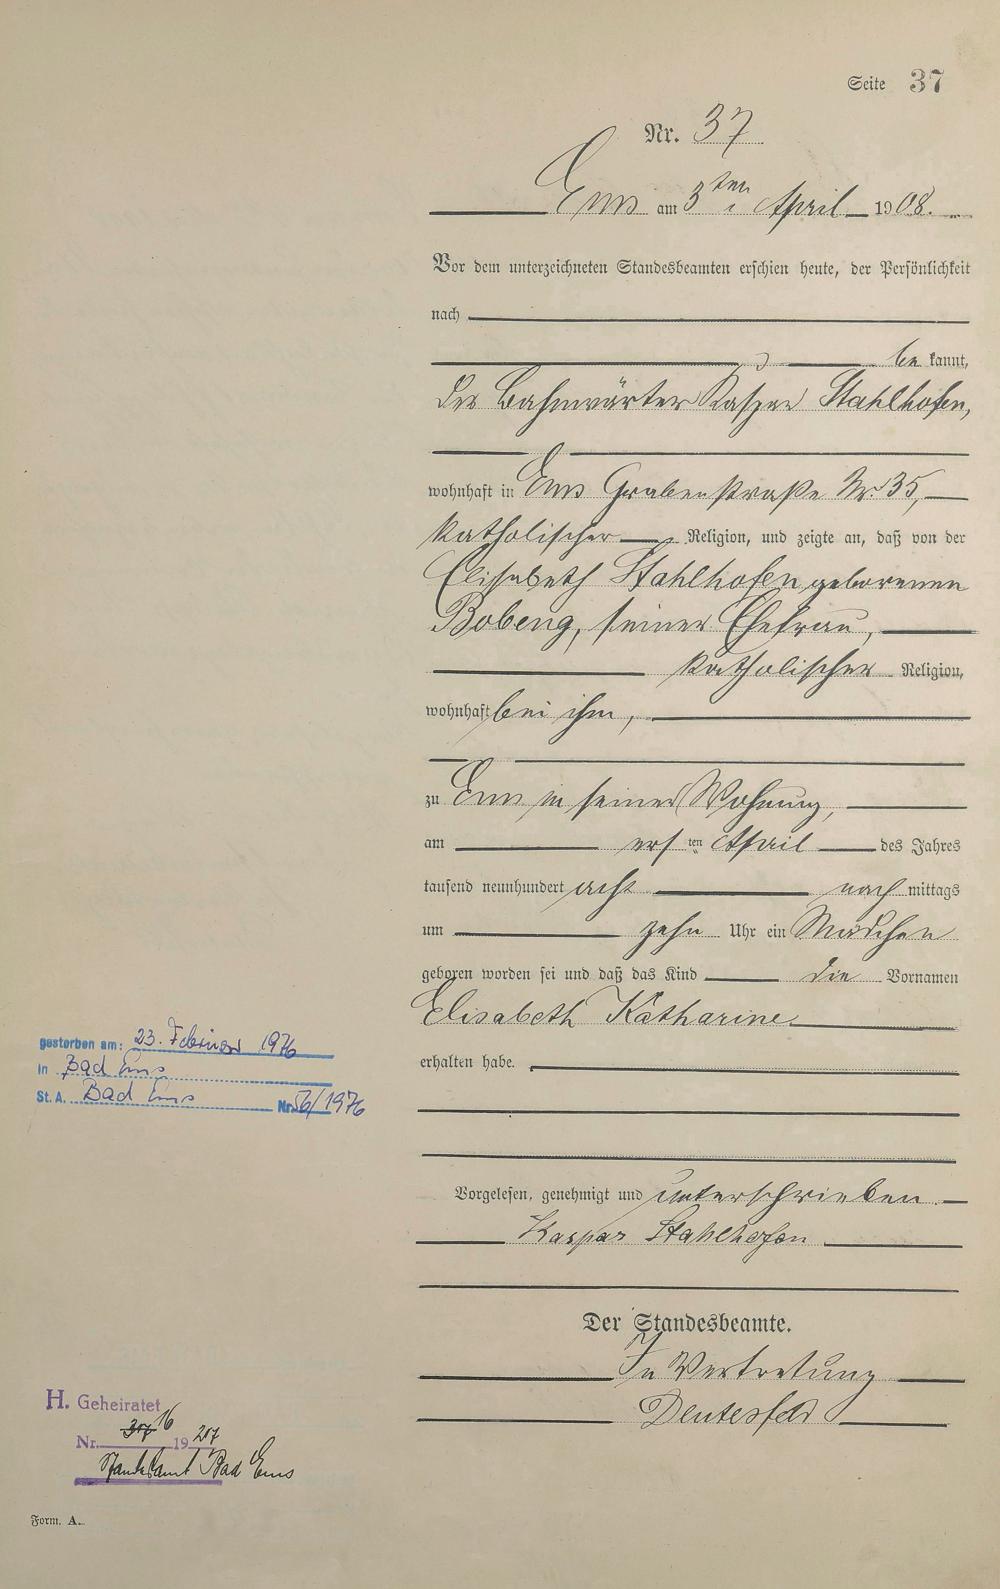 Seite 37
Nr. 37
Ems am 3ten April 1908.
Vor dem unterzeichneten Standesbeamten erschien heute, der Persönlichkeit
nach
be kannt,
der Bahnwärter Kaspar Stahlhofen,
wohnhaft in Ems Grabenstraße Nr. 35,
katholischer Religion, und zeigte an, daß von der
Elisabeth Stahlhofen geborenen
Bobeng, seiner Ehefrau,
katholischer Religion,
wohnhaft bei ihm,
zu Ems in seiner Wohnung,
am ersten April des Jahres
tausend neunhundert acht nach mittags
um zehn Uhr ein Mädchen
geboren worden sei und daß das Kind die Vornamen
Elisabeth Katharine
erhalten habe.
gestorben am: 23. Februar 1976
in Bad Ems
St. A. Bad Ems Nr. 56/1976
Vorgelesen, genehmigt und unterschrieben.
Kaspar Stahlhofen
Der Standesbeamte.
In Vertretung
H. Geheiratet
Nr. 16 19
Standesamt Bad Ems
Form. A.